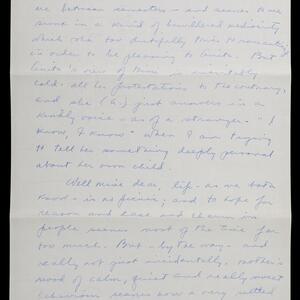 are between semesters - and seems to me
sunk in a kind of bewildered mediocrity
which she too dutifully tries to
in order to be pleasing to Anita. But
Anita's view of Mimi is essentially
cold - all her protestations to the contrary,
and she (A.) just answers in a
kindly voice - as of a stranger - "I
know, I know" when I am trying
to tell her something deeply personal
about her own child.
Well mine dear, life - as we both
know - is no picnic; and to hope for
reason and ease and charm in
people seems most of the time far
too much. But - by the way - and
really not just incidentally, Mother's
mood of calm, quiet and really sweet
seems now a very settled